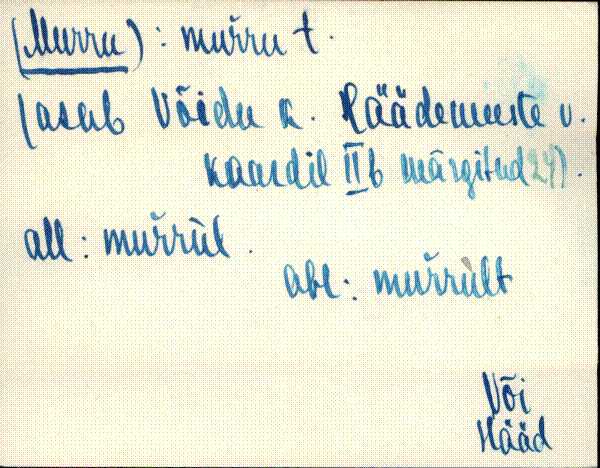 (Murru): muřru t.
(asub Võidu k. Häädemeeste v.
kaardil IIb märgitud 24).
all: muřrùl.
abl: muřrùlt
Või
Hääd